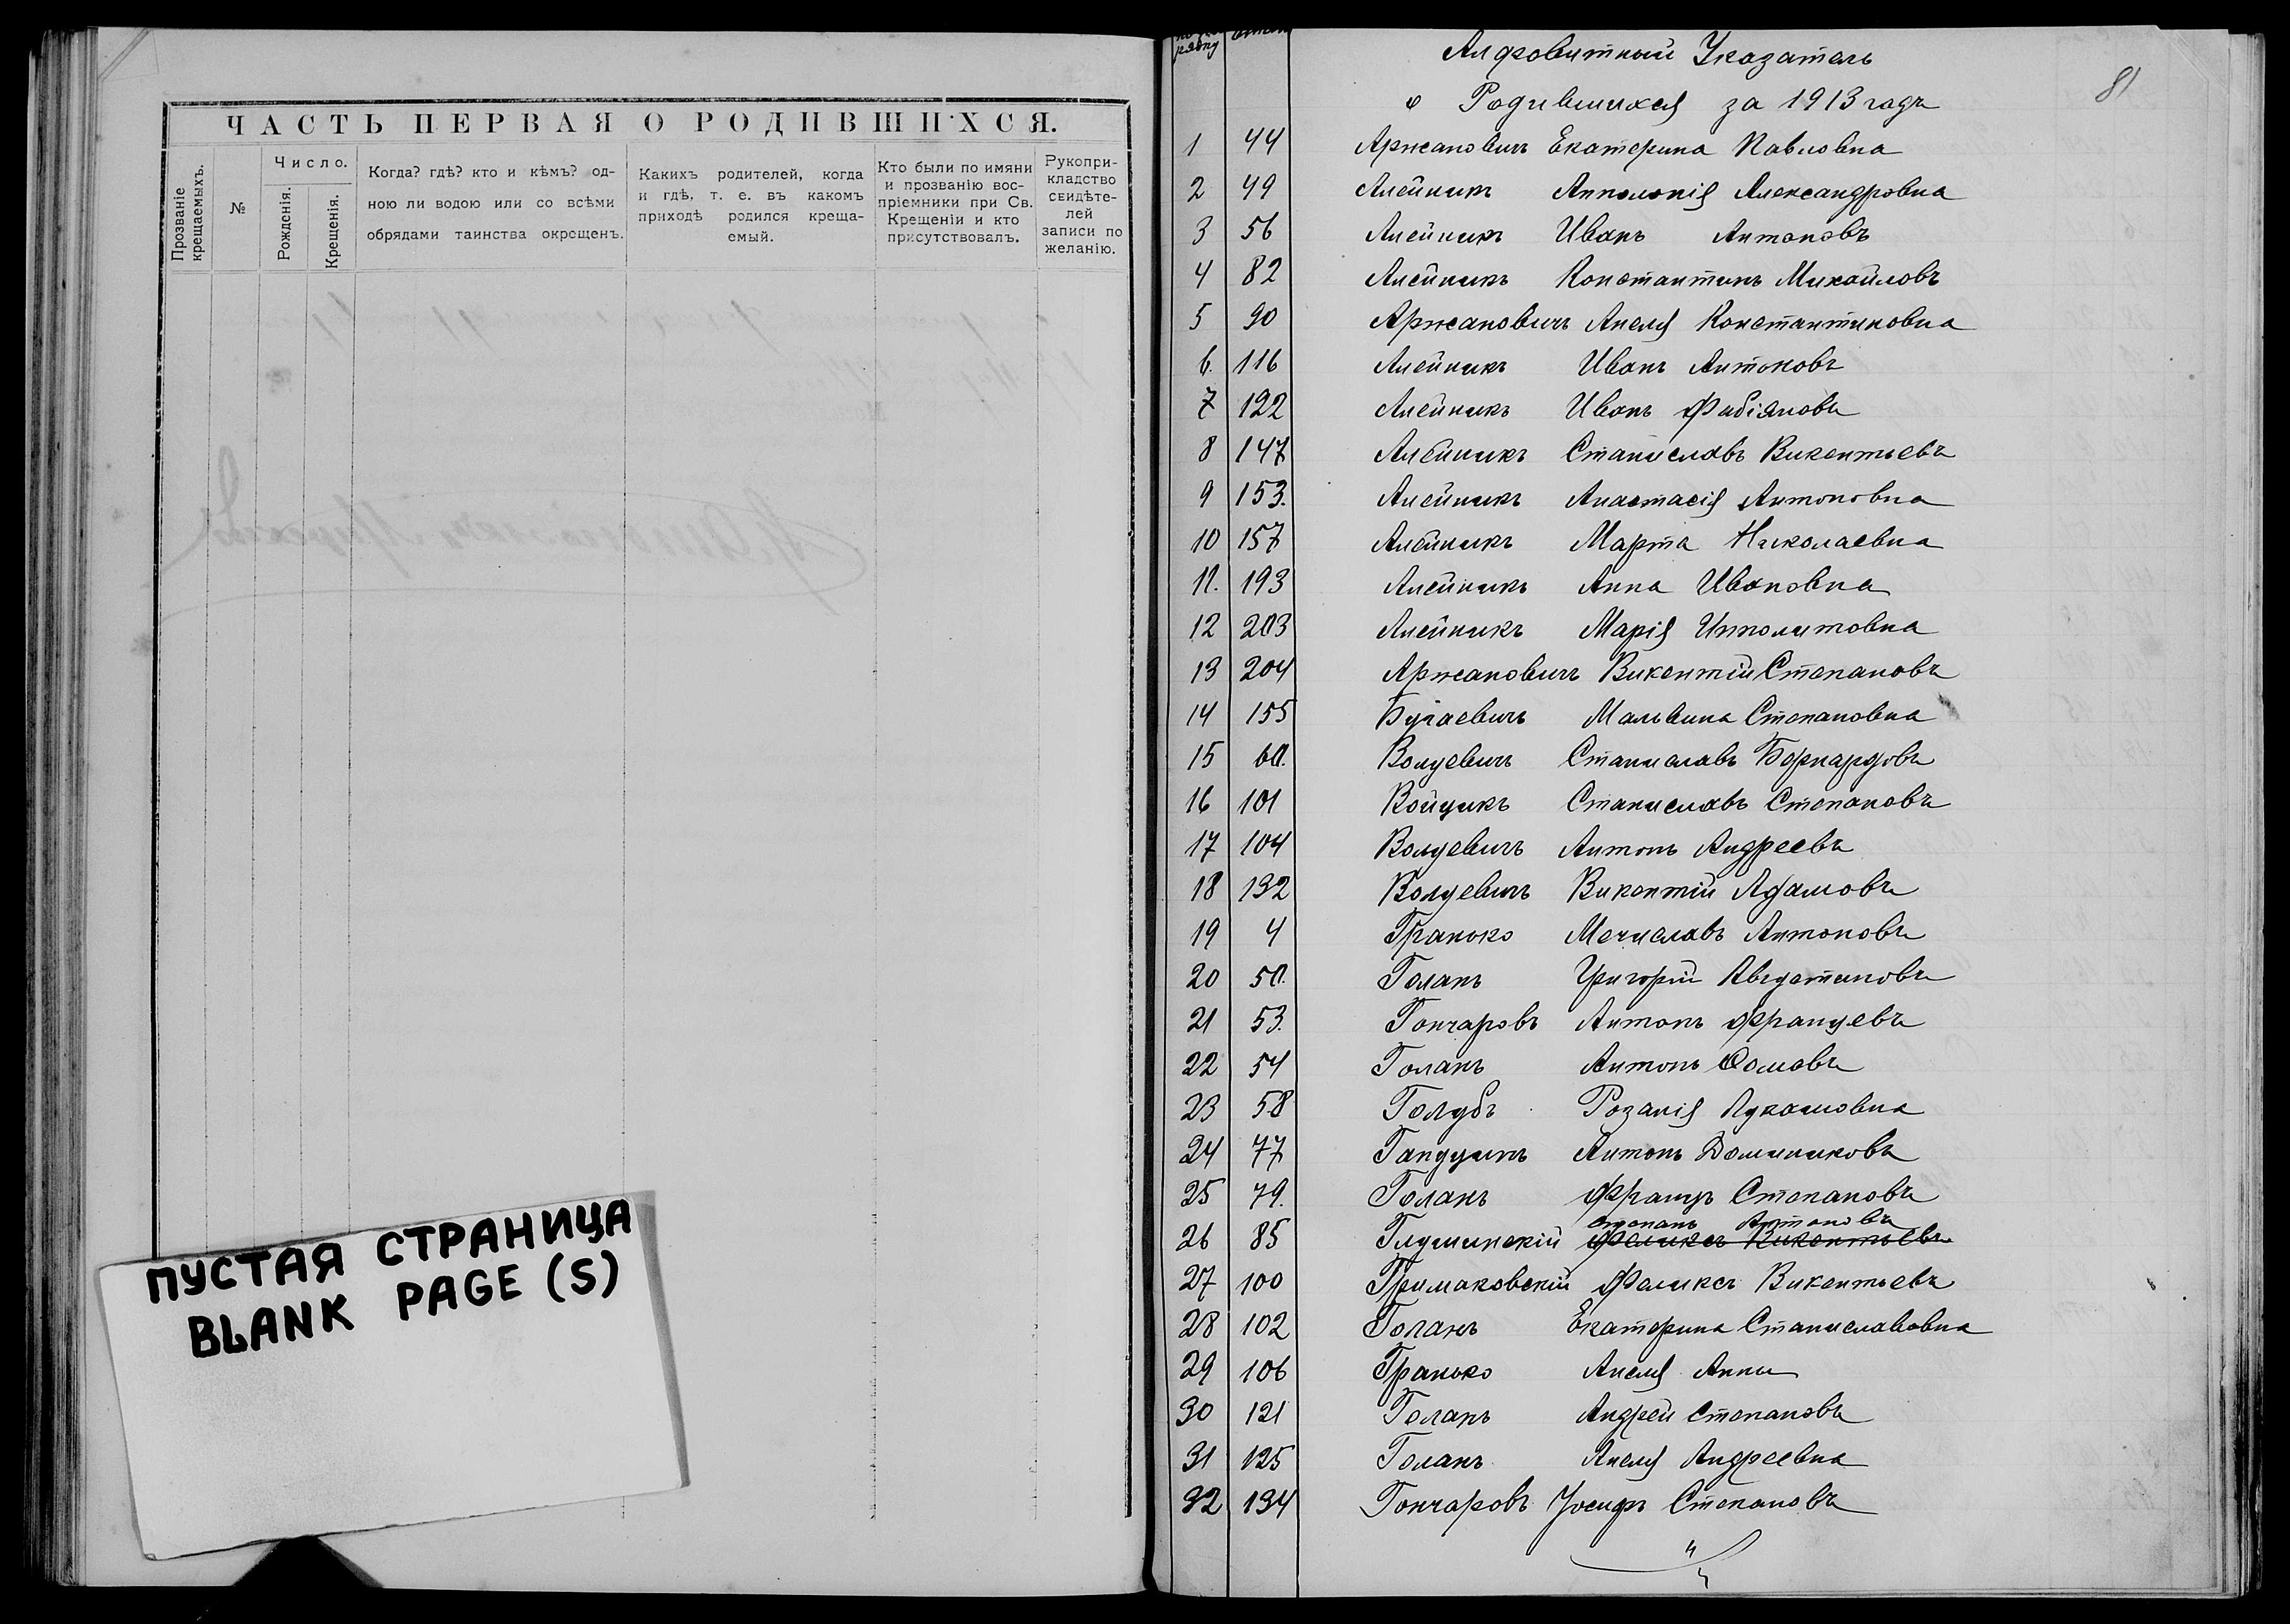 ЧАСТЬ ПЕРВАЯ О РОДИВШИХСЯ.
Прозваніе крещаемыхъ.
№
Число.
Рожденія.
Крещенія.
Когда? гдѣ? кто и кѣмъ? од-
ною ли водою или со всѣми
обрядами таинства окрещенъ.
Какихъ родителей, когда
и гдѣ, т. е. въ какомъ
приходѣ родился креща-
емый.
Кто были по имяни
и прозванію вос-
пріемники при Св.
Крещеніи и кто
присутствовалъ.
Рукопри-
кладство
свидѣте-
лей
записи по
желанію.
ПУСТАЯ СТРАНИЦА
BLANK PAGE (S)
рядку
Алфавитный Указатель
81
о Родившихся за 1913 годъ
1 44 Аржановичъ Екатерина Павловна
2 49 Алейникъ Апполонія Александровна
3 56 Алейникъ Иванъ Антоновъ
4 82 Алейникъ Константинъ Михайловъ
5 90 Аржановичъ Анеля Константиновна
6. 116 Алейникъ Иванъ Антоновъ
7 122 Алейникъ Иванъ Фабіяновъ
8 147 Алейникъ Станиславъ Викентьевъ
9 153. Алейникъ Анастасія Антоновна
10 157 Алейникъ Марта Николаевна
11. 193 Алейникъ Анна Ивановна
12 203 Алейникъ Марія Ипполитовна
13 204 Аржановичъ Викентій Степановъ
14 155 Бугаевичъ Мальвина Степановна
15 60. Волуевичъ Станиславъ Бернардовъ
16 101 Войцикъ Станиславъ Степановъ
17 104 Волуевичъ Антонъ Андреевъ
18 132 Волуевичъ Викентій Адамовъ
19 4 Гранько Мечиславъ Антоновъ
20 50. Голанъ Григорій Августиновъ
21 53. Гончаровъ Антонъ Францевъ
22 54 Голанъ Антонъ Ѳомовъ
23 58 Голубъ Розалія Лукашовна
24 77 Антонъ Доминиковъ
25 79. Голанъ Францъ Степановъ
Степанъ Антоновъ
26 85 Глушинскій Феликсъ Викентьевъ
27 100 Гримаковскій Феликсъ Викентьевъ
28 102 Голанъ Екатерина Станиславовна
29 106 Гранько Анеля Анны
30 121 Голанъ Андрей Степановъ
31 125 Голанъ Анеля Андреевна
32 134 Гончаровъ Іосифъ Степановъ